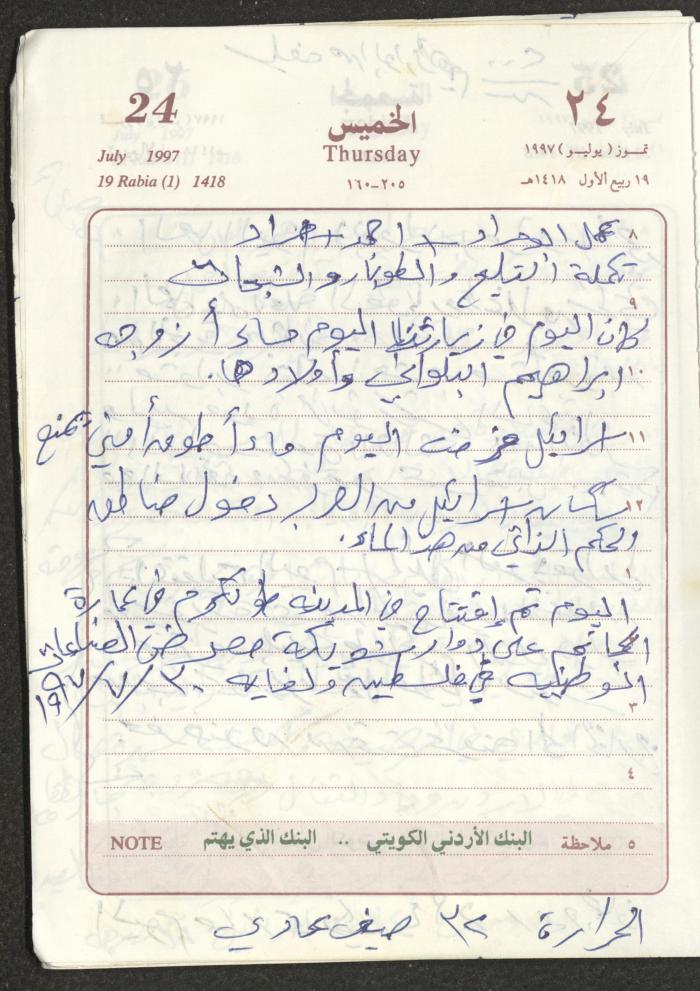 24
July 1997
19 Rabia (1) 1418
الخميس
Thursday
٢٠٥-١٦٠
٢٤
تمـوز ( يوليـو ) ١٩٩٧
١٩ ربيع الأول ١٤١٨هـ
٨
عمل الوحدات + احمد + مراد
تكملة التبليع والطوبار والشبحات
٩
كان اليوم في زيارتنا اليوم مساء أ زوجه
١٠
ابراهيم البلواني وأولادها.
١١
اسرائيل فرضت اليوم مساء طوق أمني تمنع
١٢
سكان اسرائيل من العرب دخول مناطق
الحكم الذاتي من هذا المساء.
١
اليوم تم إفتتاح في المدينه طولكرم في عمارة
على دوار شويكة معرض الصناعات
الوطنيه في فلسطين ولغايه ٣٠/٧/١٩٩٧
٣
٤
٥ ملاحظة
البنك الأردني الكويتي .. البنك الذي يهتم
NOTE
الحرارة ٣٢ صيفي عادي